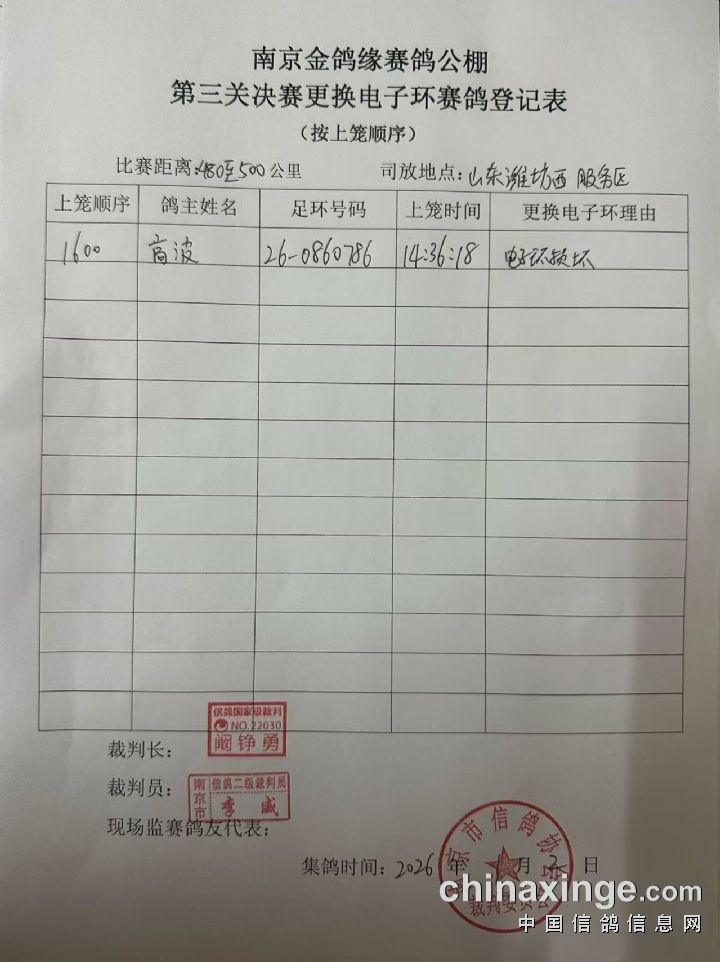 南京金鸽缘赛鸽公棚
第三关决赛更换电子环赛鸽登记表
(按上笼顺序)
比赛距离:480至500公里 司放地点:山东潍坊西服务区
上笼顺序 鸽主姓名 足环号码 上笼时间 更换电子环理由
1600 高波 26-0860786 14:36:18 电子环损坏
信鸽国家级裁判
NO.22030
阚铮勇
裁判长:
南京市 信鸽二级裁判员
裁判员: 李威
现场监赛鸽友代表:
南京市信鸽协会
集鸽时间:2026年 月2日
裁判委员会
chinaxinge.com
中国信鸽信息网